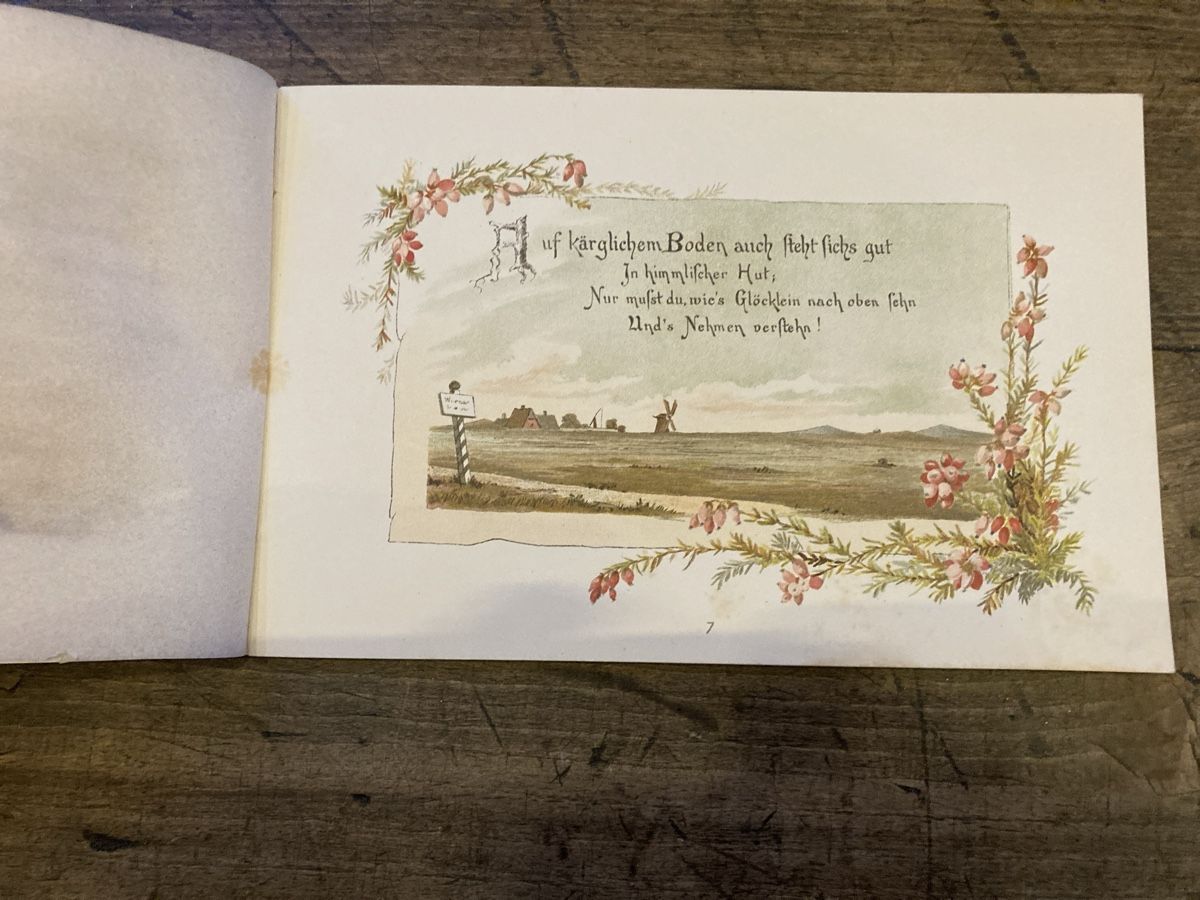 Auf kärglichem Boden auch steht sichs gut
In himmlischer Hut;
Nur musst du, wie's Glöcklein nach oben sehn
Und's Nehmen verstehn!
7